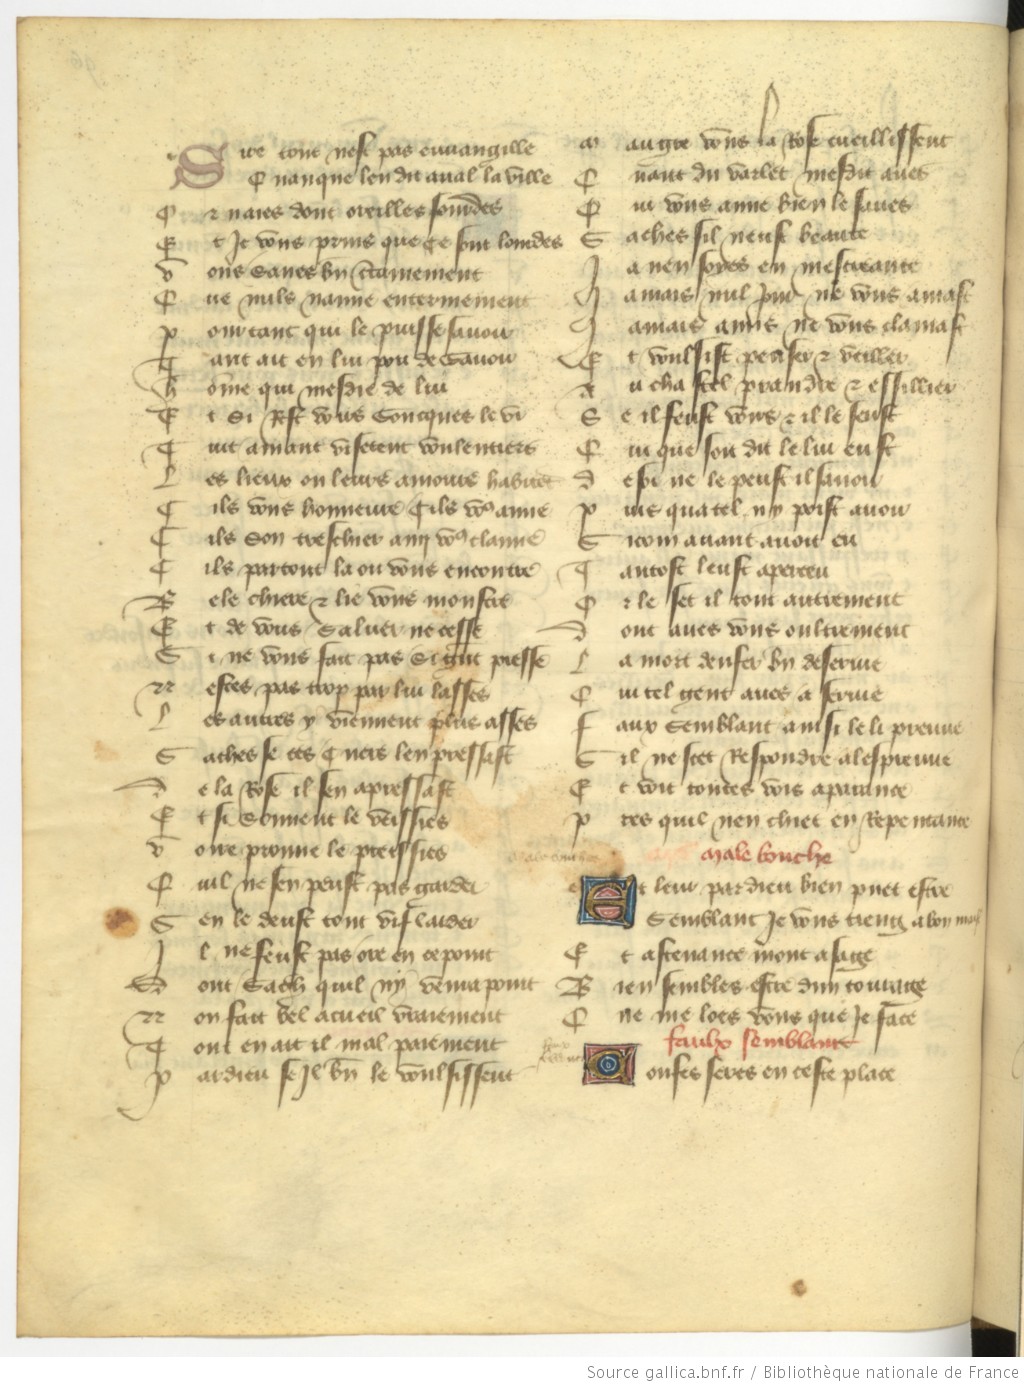 Sire tout nest pas euuangille
Quanque len dit aual la ville
Cr naies dont oreilles sourdes
Et Je vous pruis que ce sont lourdes
Vous Saues bn certainement
Que nulz nanne enterinement
Pour tant qui le puisse sauoir
Tant ait en lui pou de Sauoir
home qui mesdie de lui
Et Si Rest vous Concques le vi
Tuit amant visetent voulentiers
Les lieux ou leurs amours habite
Cils vous honneure Cils vos anne
Cils Son treschier amy vos clanne
Cils partout la ou vous encontre
Bele chiere & lie vous monstre
Et de vous Saluer ne cesse
Si ne vous fait pas Si gnt presse
Nestes pas trop par lui lasses
Les autres y viennent plus asses
Saches se ces Cuers len pressast
De la Rose il sen apressast
Et si Souuent le verissies
Voire prouue le preissies
Quil ne sen peust pas garder
Sen le deust tout vif larder
Il ne feust pas ore en ce point
Dont Sach quil ny venra point
Non fait bel acueil vraiement
Tout en ait il mal paiement
Pardieu se Il bn le voulsissent
Maugre vous la Rose cueillissent
Quant du varlet mesdit aues
Qui vous anne bien le saues
Saches sil neust beaute
Ja nen soyes en mescreante
Jamais nul Jour ne vous amast
Jamais amis ne vous clamast
Et voulsist penser & veiller
Au chastel prandre & essillier
Se il feust vous & il le seust
Qui que soit dit le lui eust
De soi ne le peust il sauoir
Puis quatel ny poist auoir
Sicom auant auoit eu
Tantost leust aperceu
Or le fet il tout autrement
Dont aues vous oultrement
La mort denfer bn deseruie
Qui tel gent aues a seruie
Faux Semblant ainsi le li preuue
Sil ne scet Respondre a lespreuue
Et voit toutes vois aparance
Pres quil nen chiet en Repentance
Male bouche
Et leur pardieu bien puet estre
Semblant Je vous tieng a bon
Et astenance mont a sage
Bien sembles estre dun courage
Que me loes vous que Je face
faulx semblant
Confes seres en ceste place
Source gallica.bnf.fr / Bibliothèque nationale de France